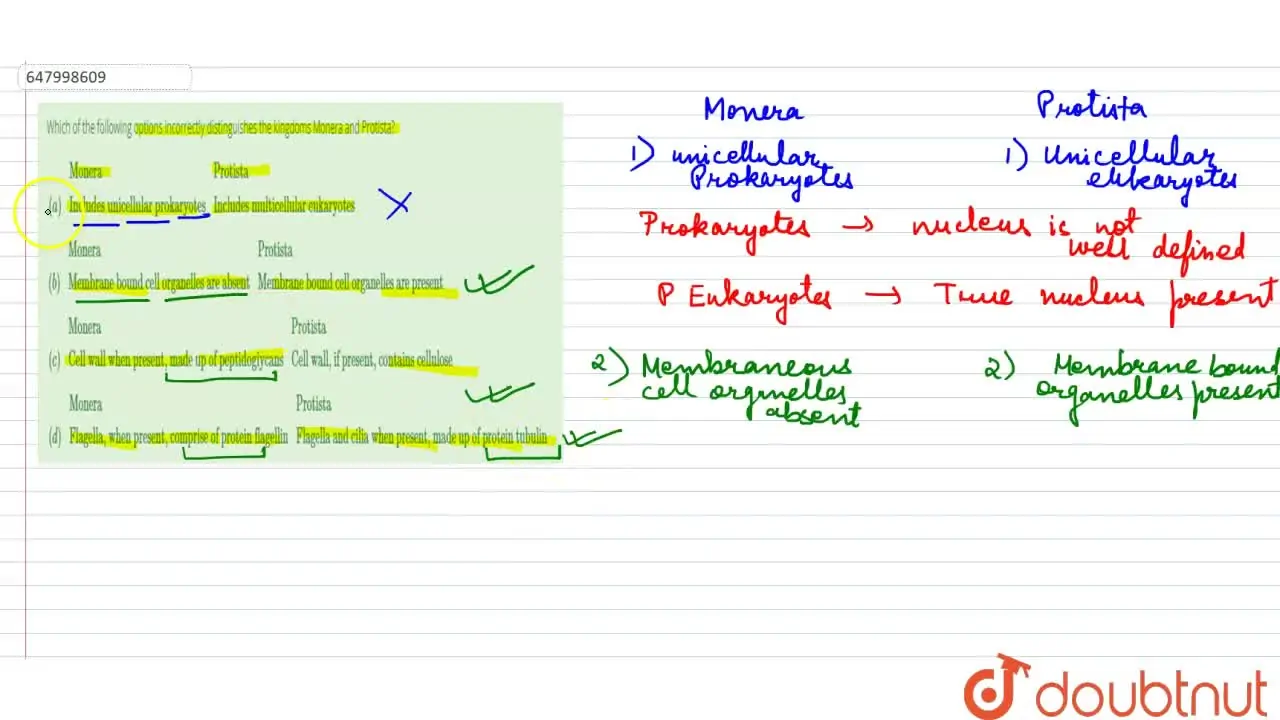 647998609
Which of the following options incorrectly distinguishes the kingdoms Monera and Protista?
Monera Protista
(a) Includes unicellular prokaryotes Includes multicellular eukaryotes
Monera Protista
(b) Membrane bound cell organelles are absent Membrane bound cell organelles are present
Monera Protista
(c) Cell wall when present, made up of peptidoglycans Cell wall, if present, contains cellulose
Monera Protista
(d) Flagella, when present, comprise of protein flagellin Flagella and cilia when present, made up of protein tubulin
Monera
1) unicellular
Prokaryotes
Protista
1) Unicellular
eukaryotes
Prokaryotes → nucleus is not
well defined
P Eukaryotes → True nucleus present
2) Membraneous
cell orgnelles
absent
2) Membrane bound
organelles present
doubtnut